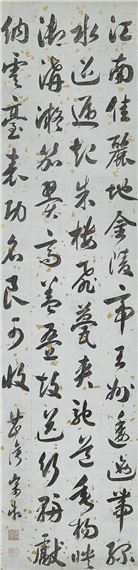 江南佳麗地金陵帝王州逶迤帶綠
水迢遞起朱樓飛甍夾馳道垂楊蔭
御溝凝笳翼高蓋疊鼓送行輈獻
納雲臺表功名良可收